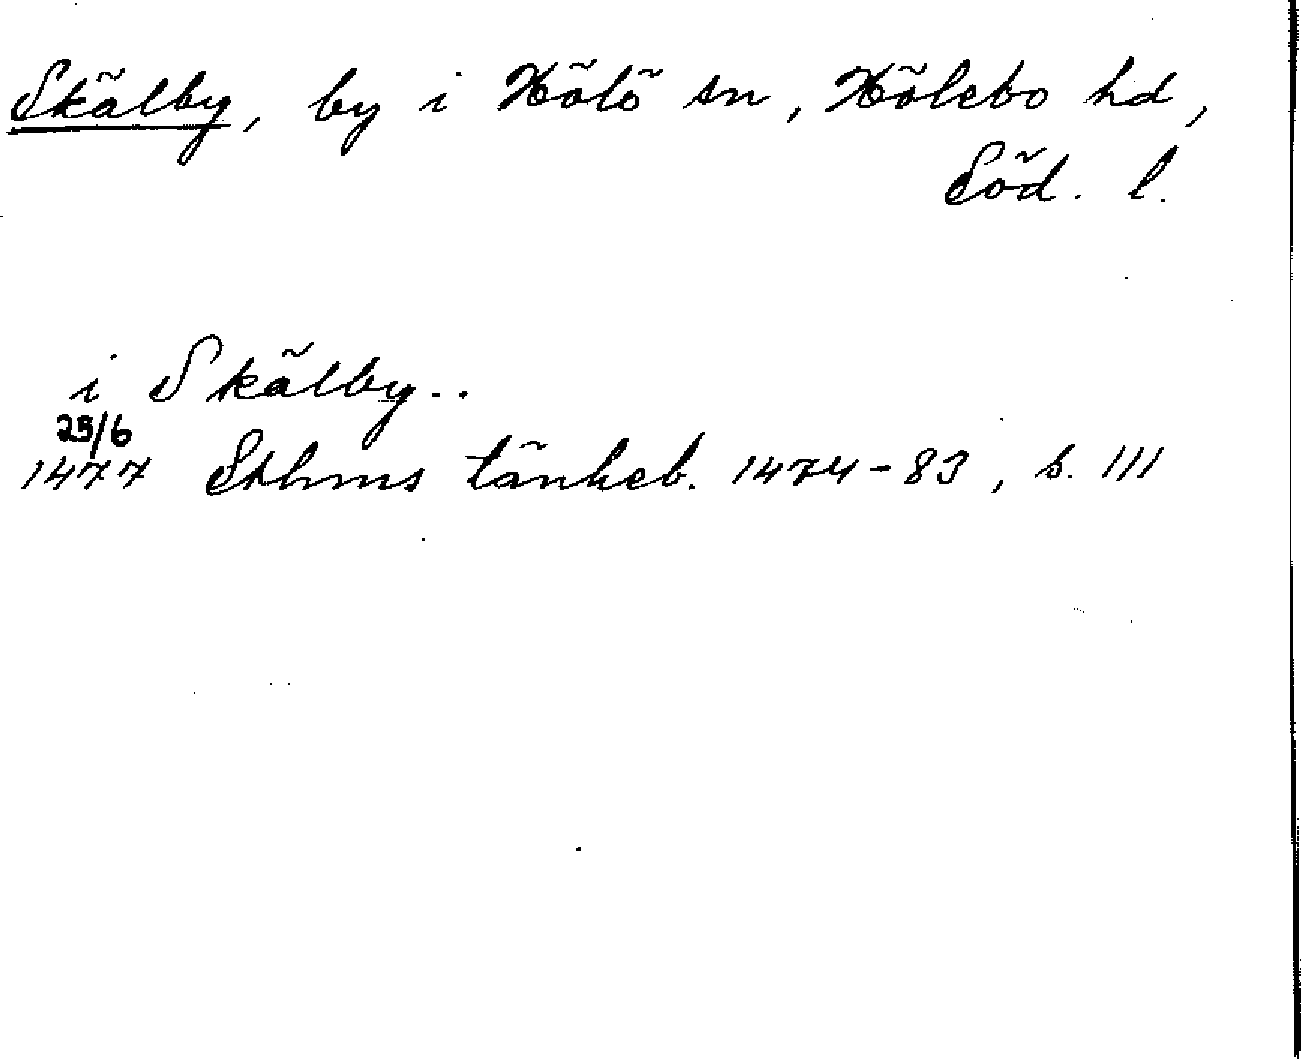 Skälby, by i Hölö sn, Hölebo hd,
Söd. l.
i Skälby..
23/6
1477 Sthms tänkeb. 1474-83, s. 111